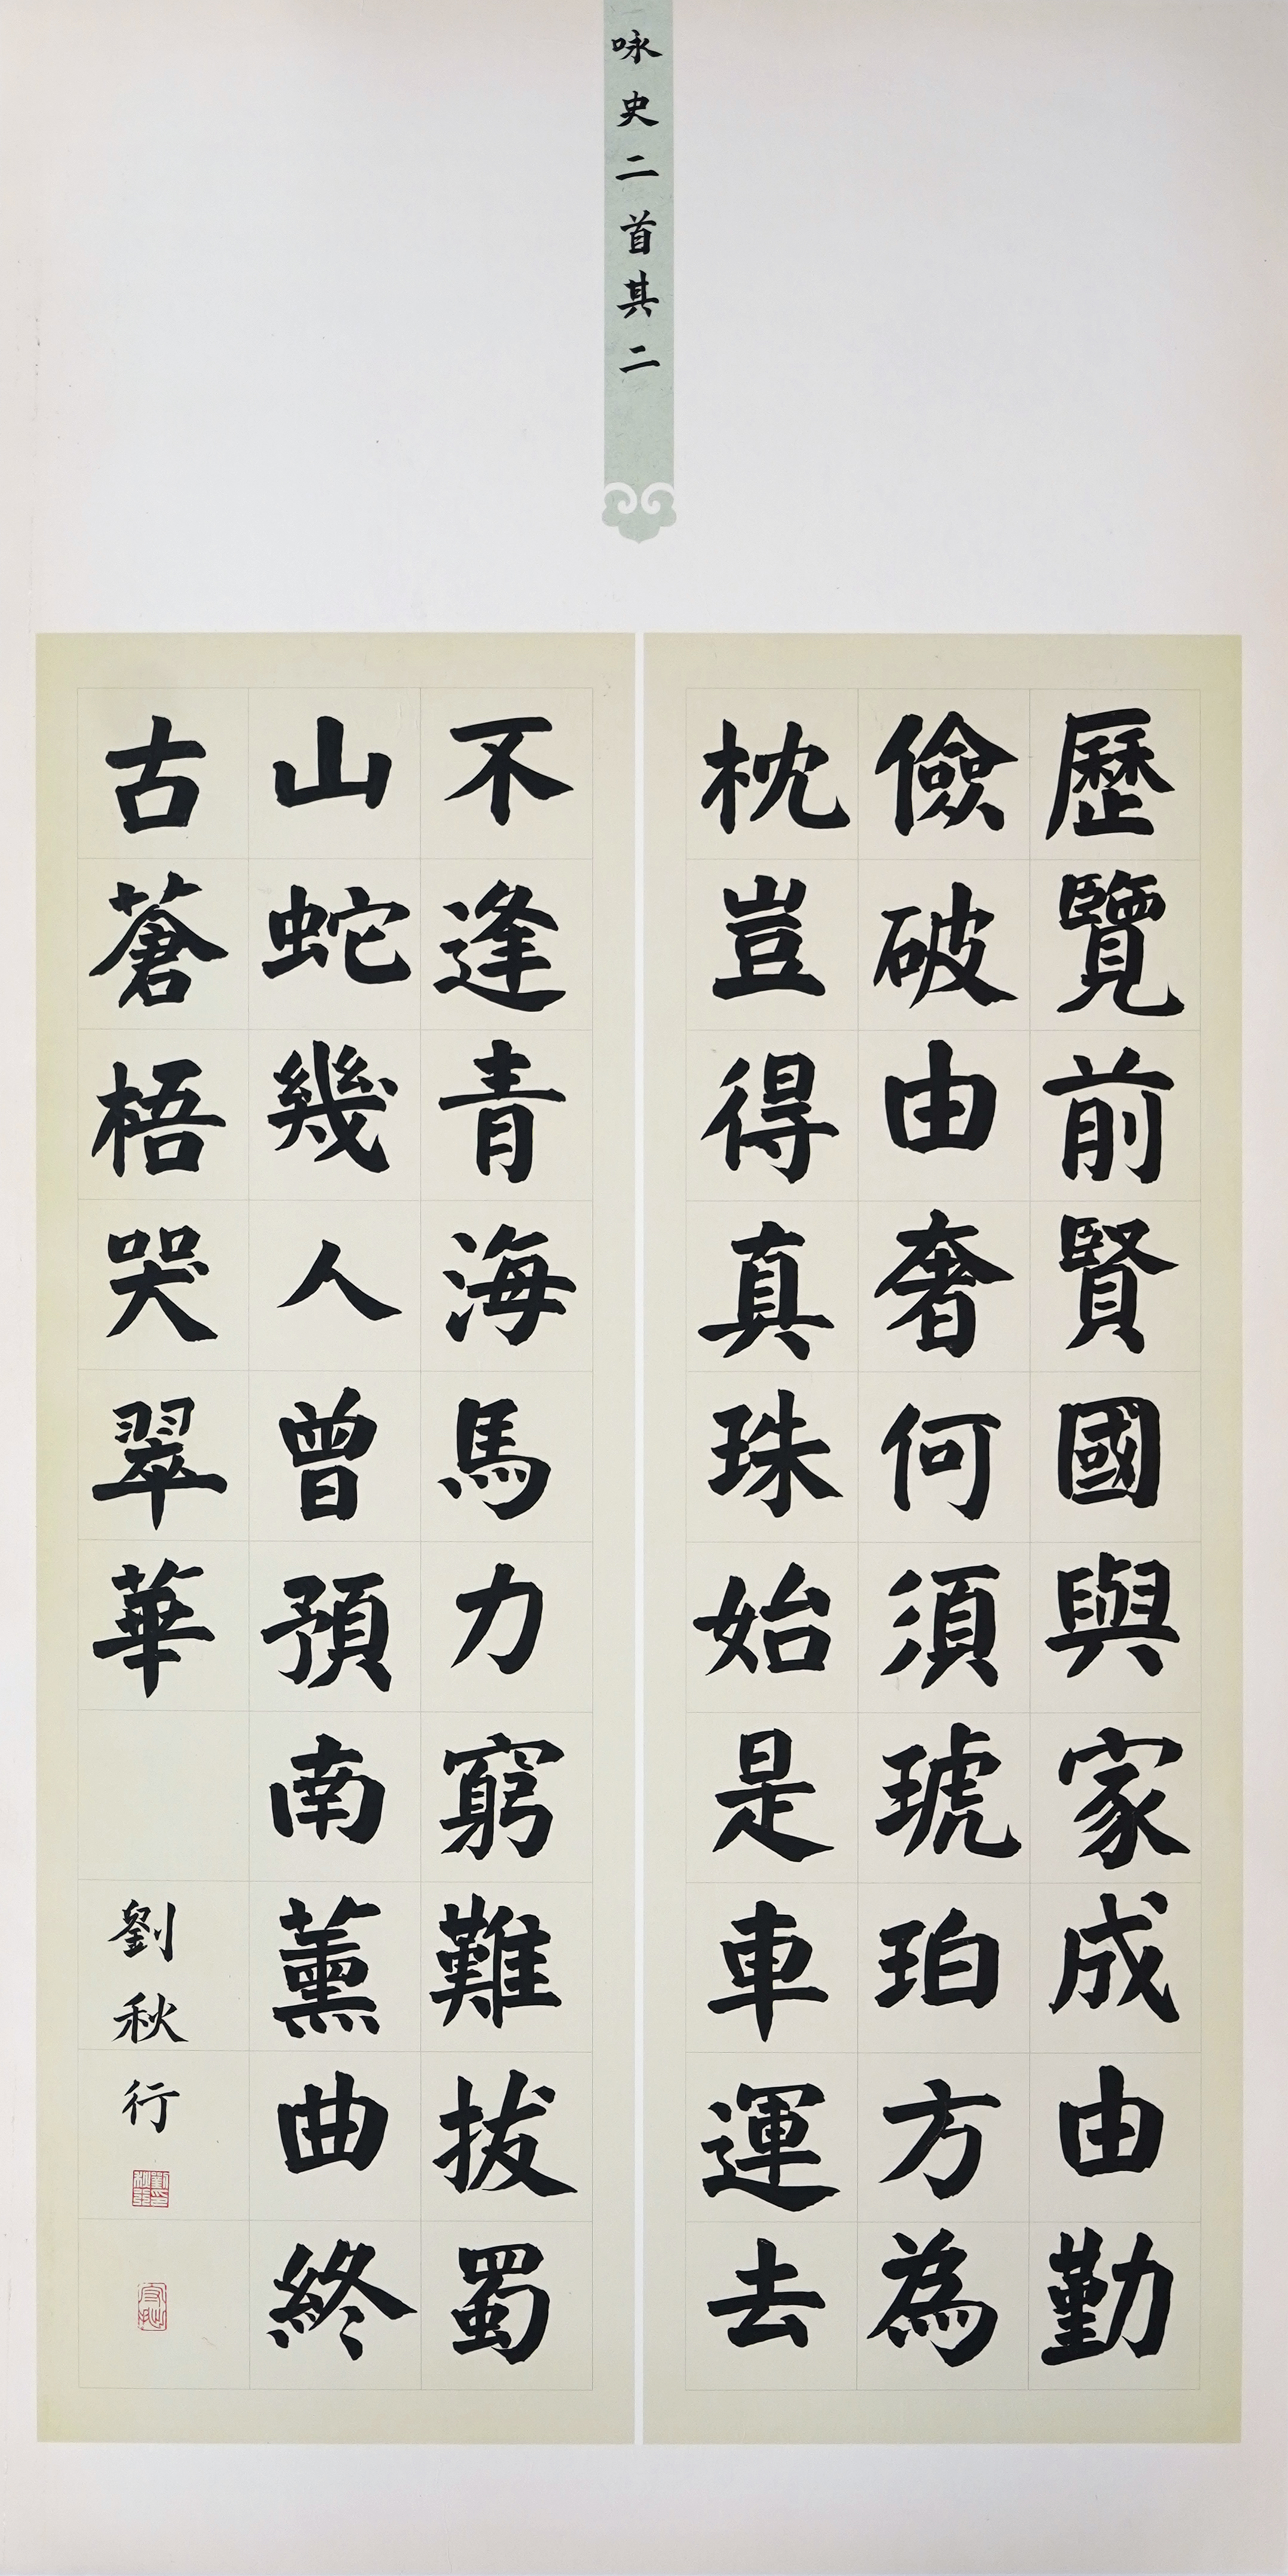 咏史二首其二
歷覽前賢國與家成由勤
儉破由奢何須琥珀方為
枕豈得真珠始是車運去
不逢青海馬力窮難拔蜀
山蛇幾人曾預南薰曲終
古蒼梧哭翠華
劉秋行